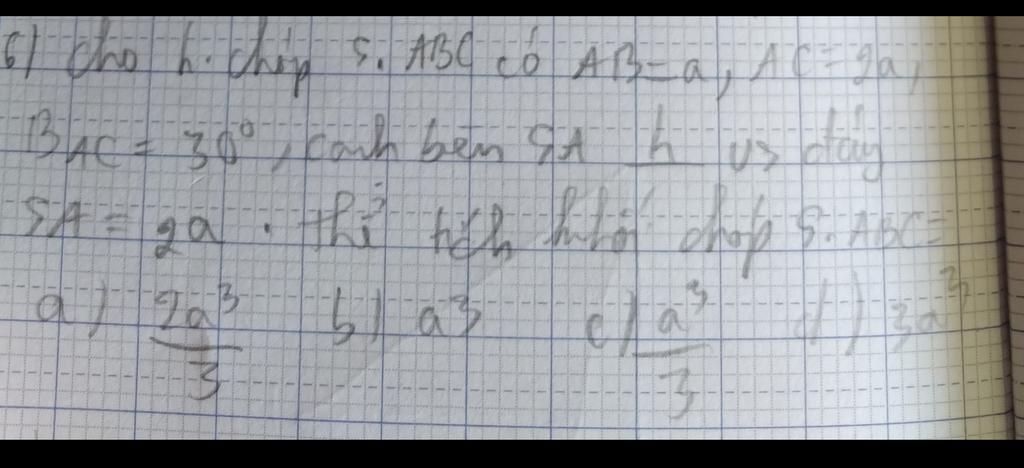 6) Cho h. chóp S. ABC có AB=a, AC=2a,
BAC = 30°, cạnh bên SA h vs đáy
SA = 2a . thể tích khối chóp S. ABC=
a) 2a³/3 b) a³ c) a³/3 d) 3a³